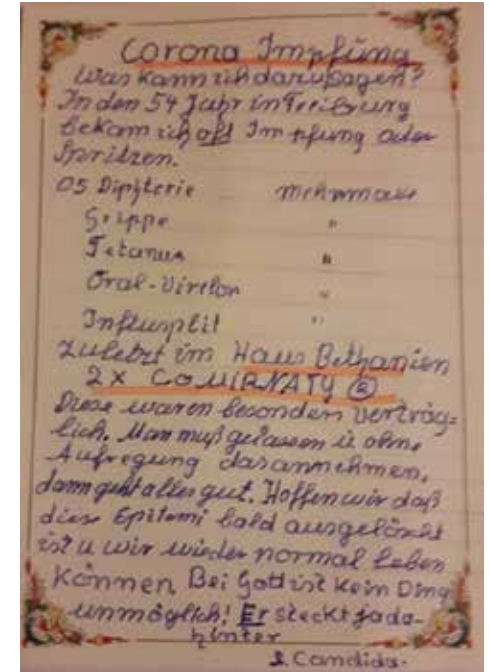 Corona Impfung
Was kann ich dazu sagen?
In den 54 Jahr in Freiburg
bekam ich oft Impfung oder
Spritzen.
05 Dipjterie mehrmals
Grippe "
Tetanus "
Oral-Virelon "
Influsplit "
Zuletzt im Haus Bethanien
2x COMIRNATY ®
Diese waren besonders verträg=
lich. Man muß gelassen u. ohne
Aufregung das annehmen,
dann geht alles gut. Hoffen wir daß
diese Epitemi bald ausgelöscht
ist u wir wieder normal leben
können Bei Gott ist kein Ding
unmöglich! Er steckt ja da-
hinter
S. Candida.